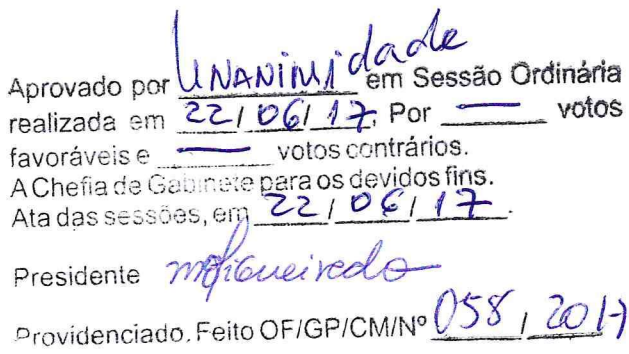 Aprovado por UNANIMIdade em Sessão Ordinária
realizada em 22/06/17, Por — votos
favoráveis e — votos contrários.
A Chefia de Gabinete para os devidos fins.
Ata das sessões, em 22/06/17.
Presidente mfigueiredo
Providenciado. Feito OF/GP/CM/Nº 058/2017